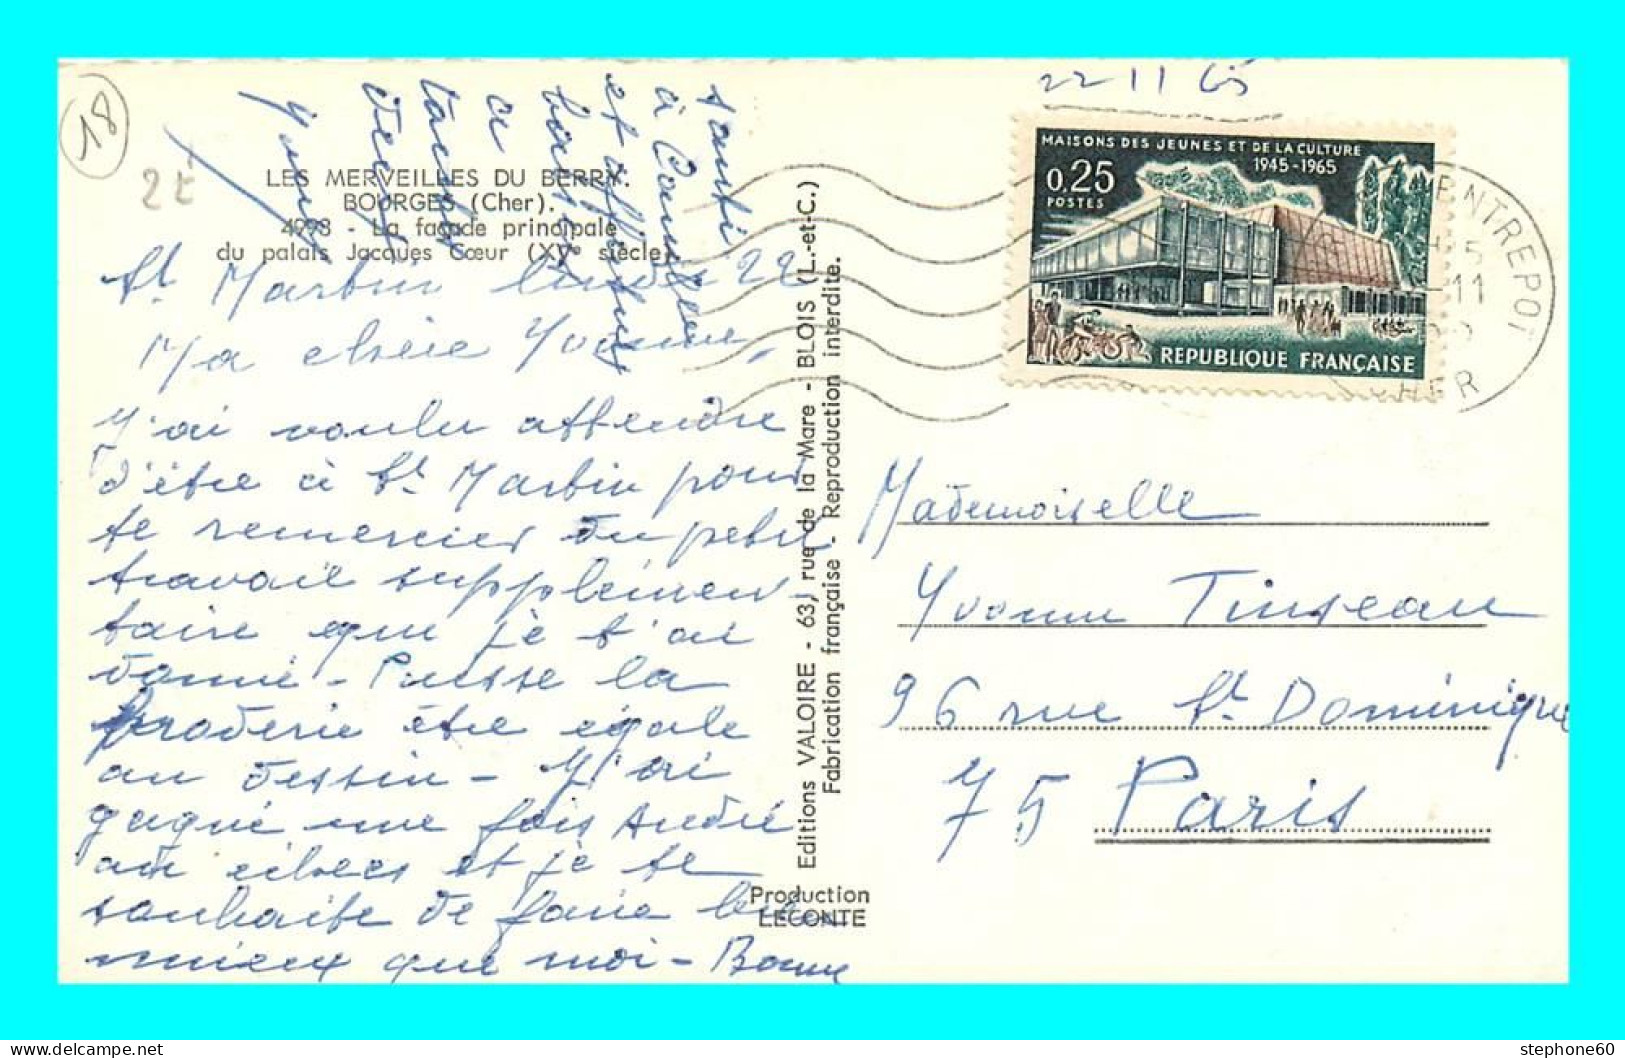 22 11 65
18
2€
LES MERVEILLES DU BERRY.
BOURGES (Cher).
4993 - La façade principale
du palais Jacques Cœur (XVe siècle)
St Martin lundi 22
Ma chère Yvonne,
J'ai voulu attendre
d'être à St Martin pour
te remercier du petit
travail supplémen-
taire que je t'ai
donné - Puisse la
broderie être égale
au dessin - J'ai
gagné une fois André
au échecs et je te
souhaite de faire bien
mieux que moi - Bonne
santé
à Camille
et affectueuse
à
tous
deux
MAISONS DES JEUNES ET DE LA CULTURE
1945-1965
0.25
POSTES
REPUBLIQUE FRANÇAISE
ENTREPOT
15
-11
CHER
Editions VALOIRE - 63, rue de la Mare - BLOIS (L.-et-C.)
Fabrication française - Reproduction interdite.
Production
LECONTE
Mademoiselle
Yvonne Tinseau
96 rue St Dominique
75 Paris
stephone60